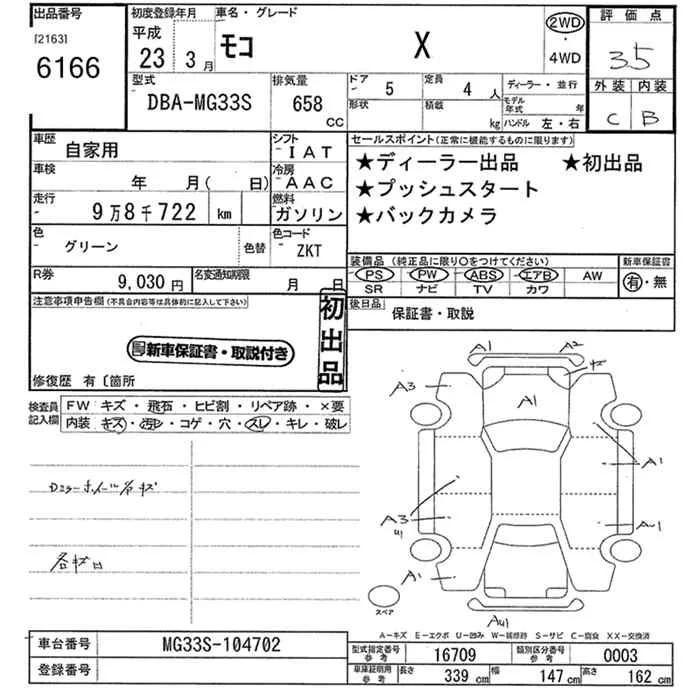 出品番号
[2163]
6166
初度登録年月
平成
23年 3月
車名・グレード
モコ X
2WD
・
4WD
評価点
3.5
外装 内装
C B
型式
DBA-MG33S
排気量
658
CC
ドア
5
定員
4 人
ディーラー・並行
形状
積載
kg
モデル年式 年
ハンドル 左・右
車歴
自家用
シフト
IAT
車検
年 月( 日)
冷房
AAC
走行
9万8千722 km
燃料
ガソリン
色
グリーン
色替
色コード
ZKT
R券
9,030円
名変通知期限
月 日
セールスポイント(正常に機能するものに限ります)
★ディーラー出品 ★初出品
★プッシュスタート
★バックカメラ
装備品(純正品に限り○をつけてください)
PS PW ABS エアB AW
SR ナビ TV カワ
新車保証書
有・無
後日品
保証書・取説
注意事項申告欄(不具合内容等は具体的に記入して下さい)
初出品
新車保証書・取説付き
修復歴 有〔箇所
検査員記入欄
FW キズ・飛石・ヒビ割・リペア跡・×要
内装 キズ・汚レ・コゲ・穴・スレ・キレ・破レ
各キズ
A1 A2
A3
A1
A1
A3
A1
A1
A1
AU1
スペア
A-キズ E-エクボ U-凹み W-補修跡 S-サビ C-腐食 XX-交換済
車台番号
MG33S-104702
登録番号
型式指定番号
参考
16709
類別区分番号
参考
0003
車庫証明用
参考
長さ
339 cm
幅
147 cm
高さ
162 cm